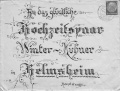 An das göttliche
Hochzeitspaar
Winter-Köhner
Helmsheim